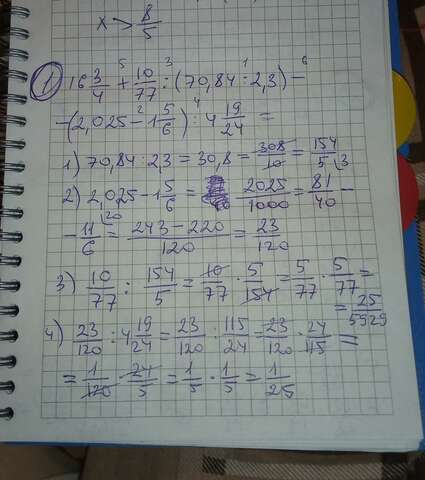 x > 8/5
1) 16 3/4 + 10/77 : (70,84 : 2,3) -
- (2,025 - 1 5/6) : 4 19/24 =
1) 70,84 : 2,3 = 30,8 = 308/10 = 154/5
2) 2,025 - 1 5/6 = 2025/1000 = 81/40 -
- 11/6 = 243 - 220/120 = 23/120
3) 10/77 : 154/5 = 10/77 · 5/154 = 5/77 · 5/77 =
= 25/5929
4) 23/120 : 4 19/24 = 23/120 : 115/24 = 23/120 · 24/115 =
= 1/120 · 24/5 = 1/5 · 1/5 = 1/25